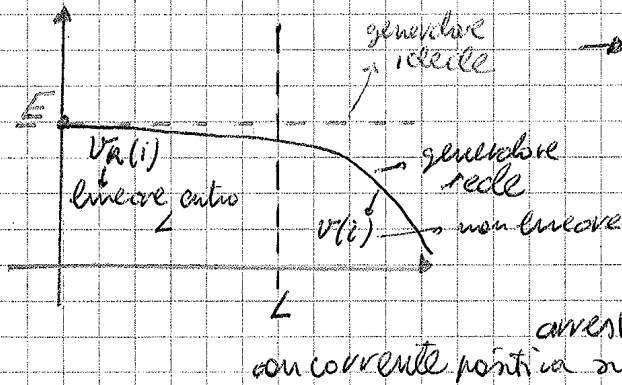 generatore
ideale
E
v_R(i)
lineare entro
L
generatore
reale
v(i)
non lineare
L
arrest
con corrente positiva